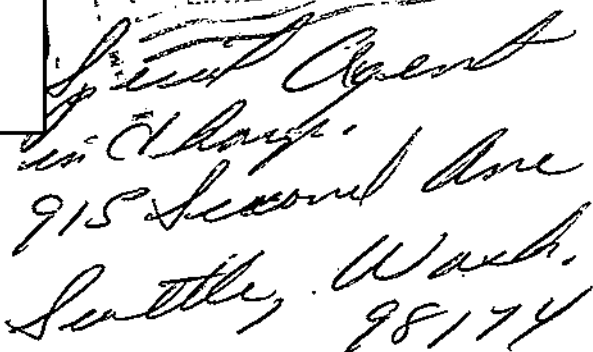 Special Agent
in Charge.
915 Second Ave
Seattle, Wash.
98174